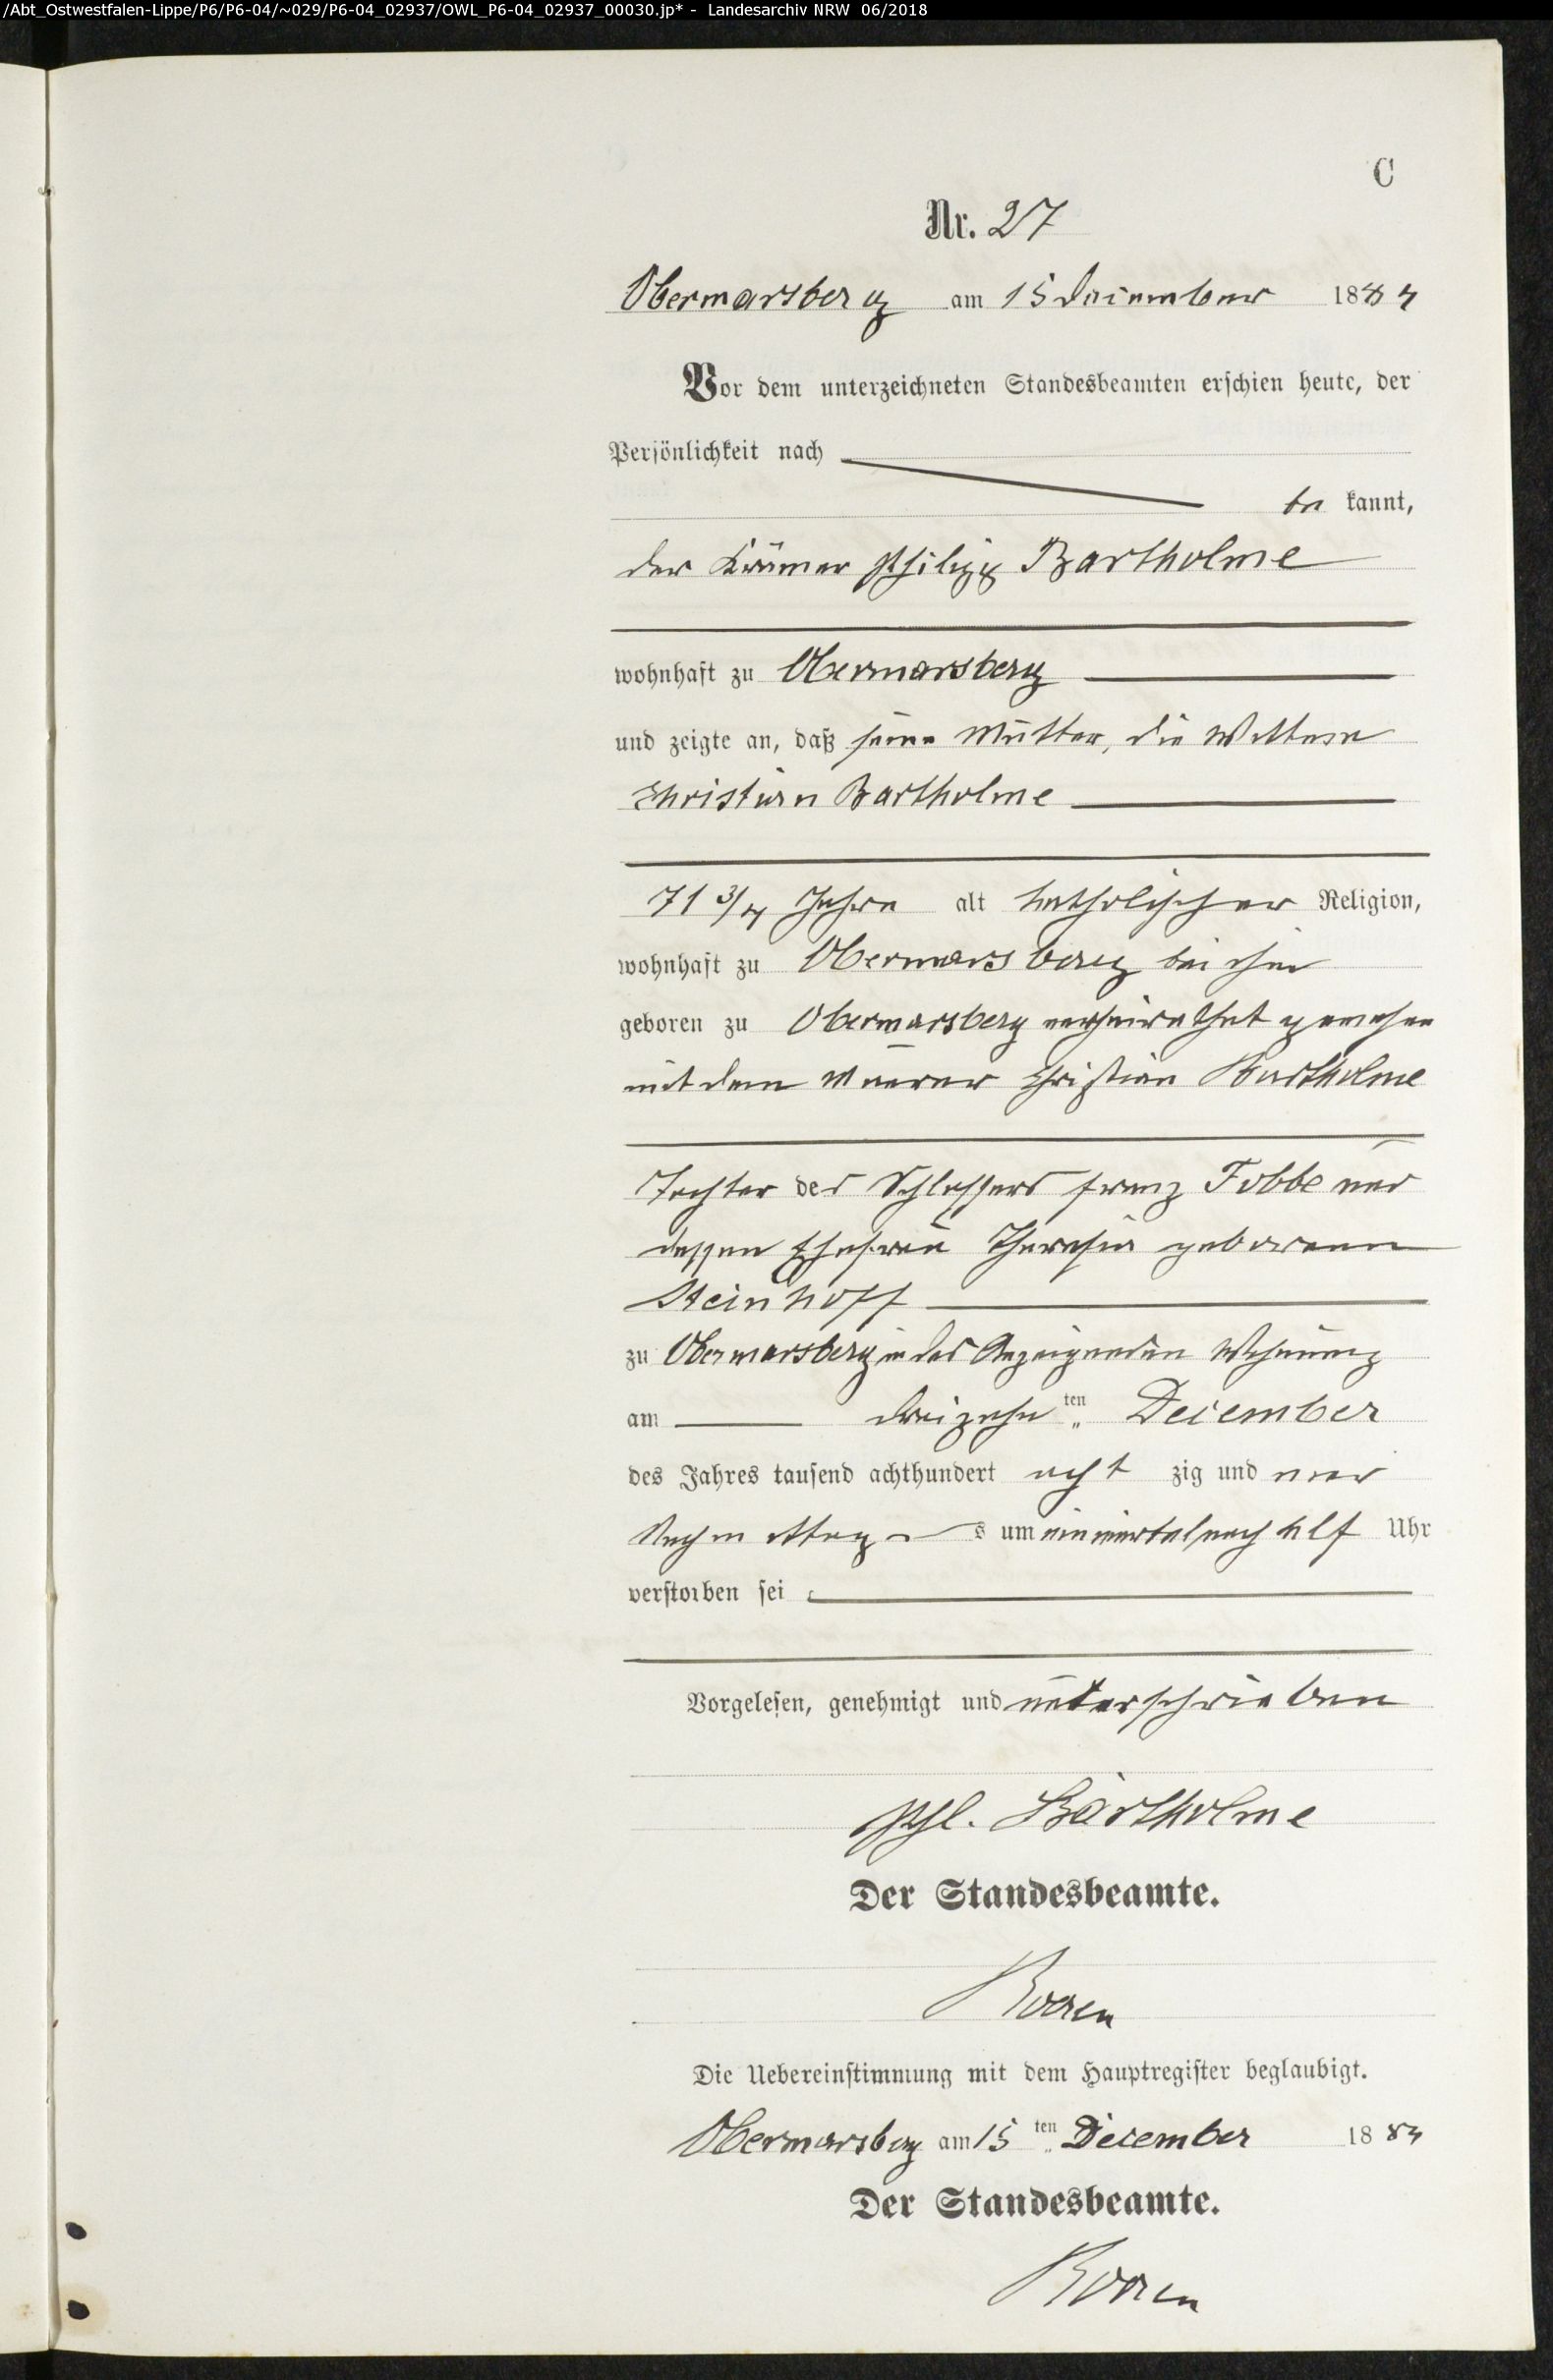 /Abt_Ostwestfalen-Lippe/P6/P6-04/~029/P6-04_02937/OWL_P6-04_02937_00030.jp* - Landesarchiv NRW 06/2018
C
Nr. 27
Obermarsberg am 15 December 1884
Vor dem unterzeichneten Standesbeamten erschien heute, der
Persönlichkeit nach
be kannt,
der Krämer Philipp Bartholme
wohnhaft zu Obermarsberg
und zeigte an, daß seine Mutter, die Wittwe
Christian Bartholme
71 3/4 Jahre alt katholischer Religion,
wohnhaft zu Obermarsberg bei ihm
geboren zu Obermarsberg verheirathet gewesen
mit dem Maurer Christian Bartholme
Tochter des Schlossers Franz Fobbe und
dessen Ehefrau Theresia geborenen
Steinhoff
zu Obermarsberg in des Anzeigenden Wohnung
am dreizehn ten December
des Jahres tausend achthundert acht zig und vier
Nachmittag s um ein viertel nach elf Uhr
verstorben sei
Vorgelesen, genehmigt und unterschrieben
Phl. Bartholme
Der Standesbeamte.
Die Uebereinstimmung mit dem Hauptregister beglaubigt.
Obermarsberg am 15 ten December 1884
Der Standesbeamte.